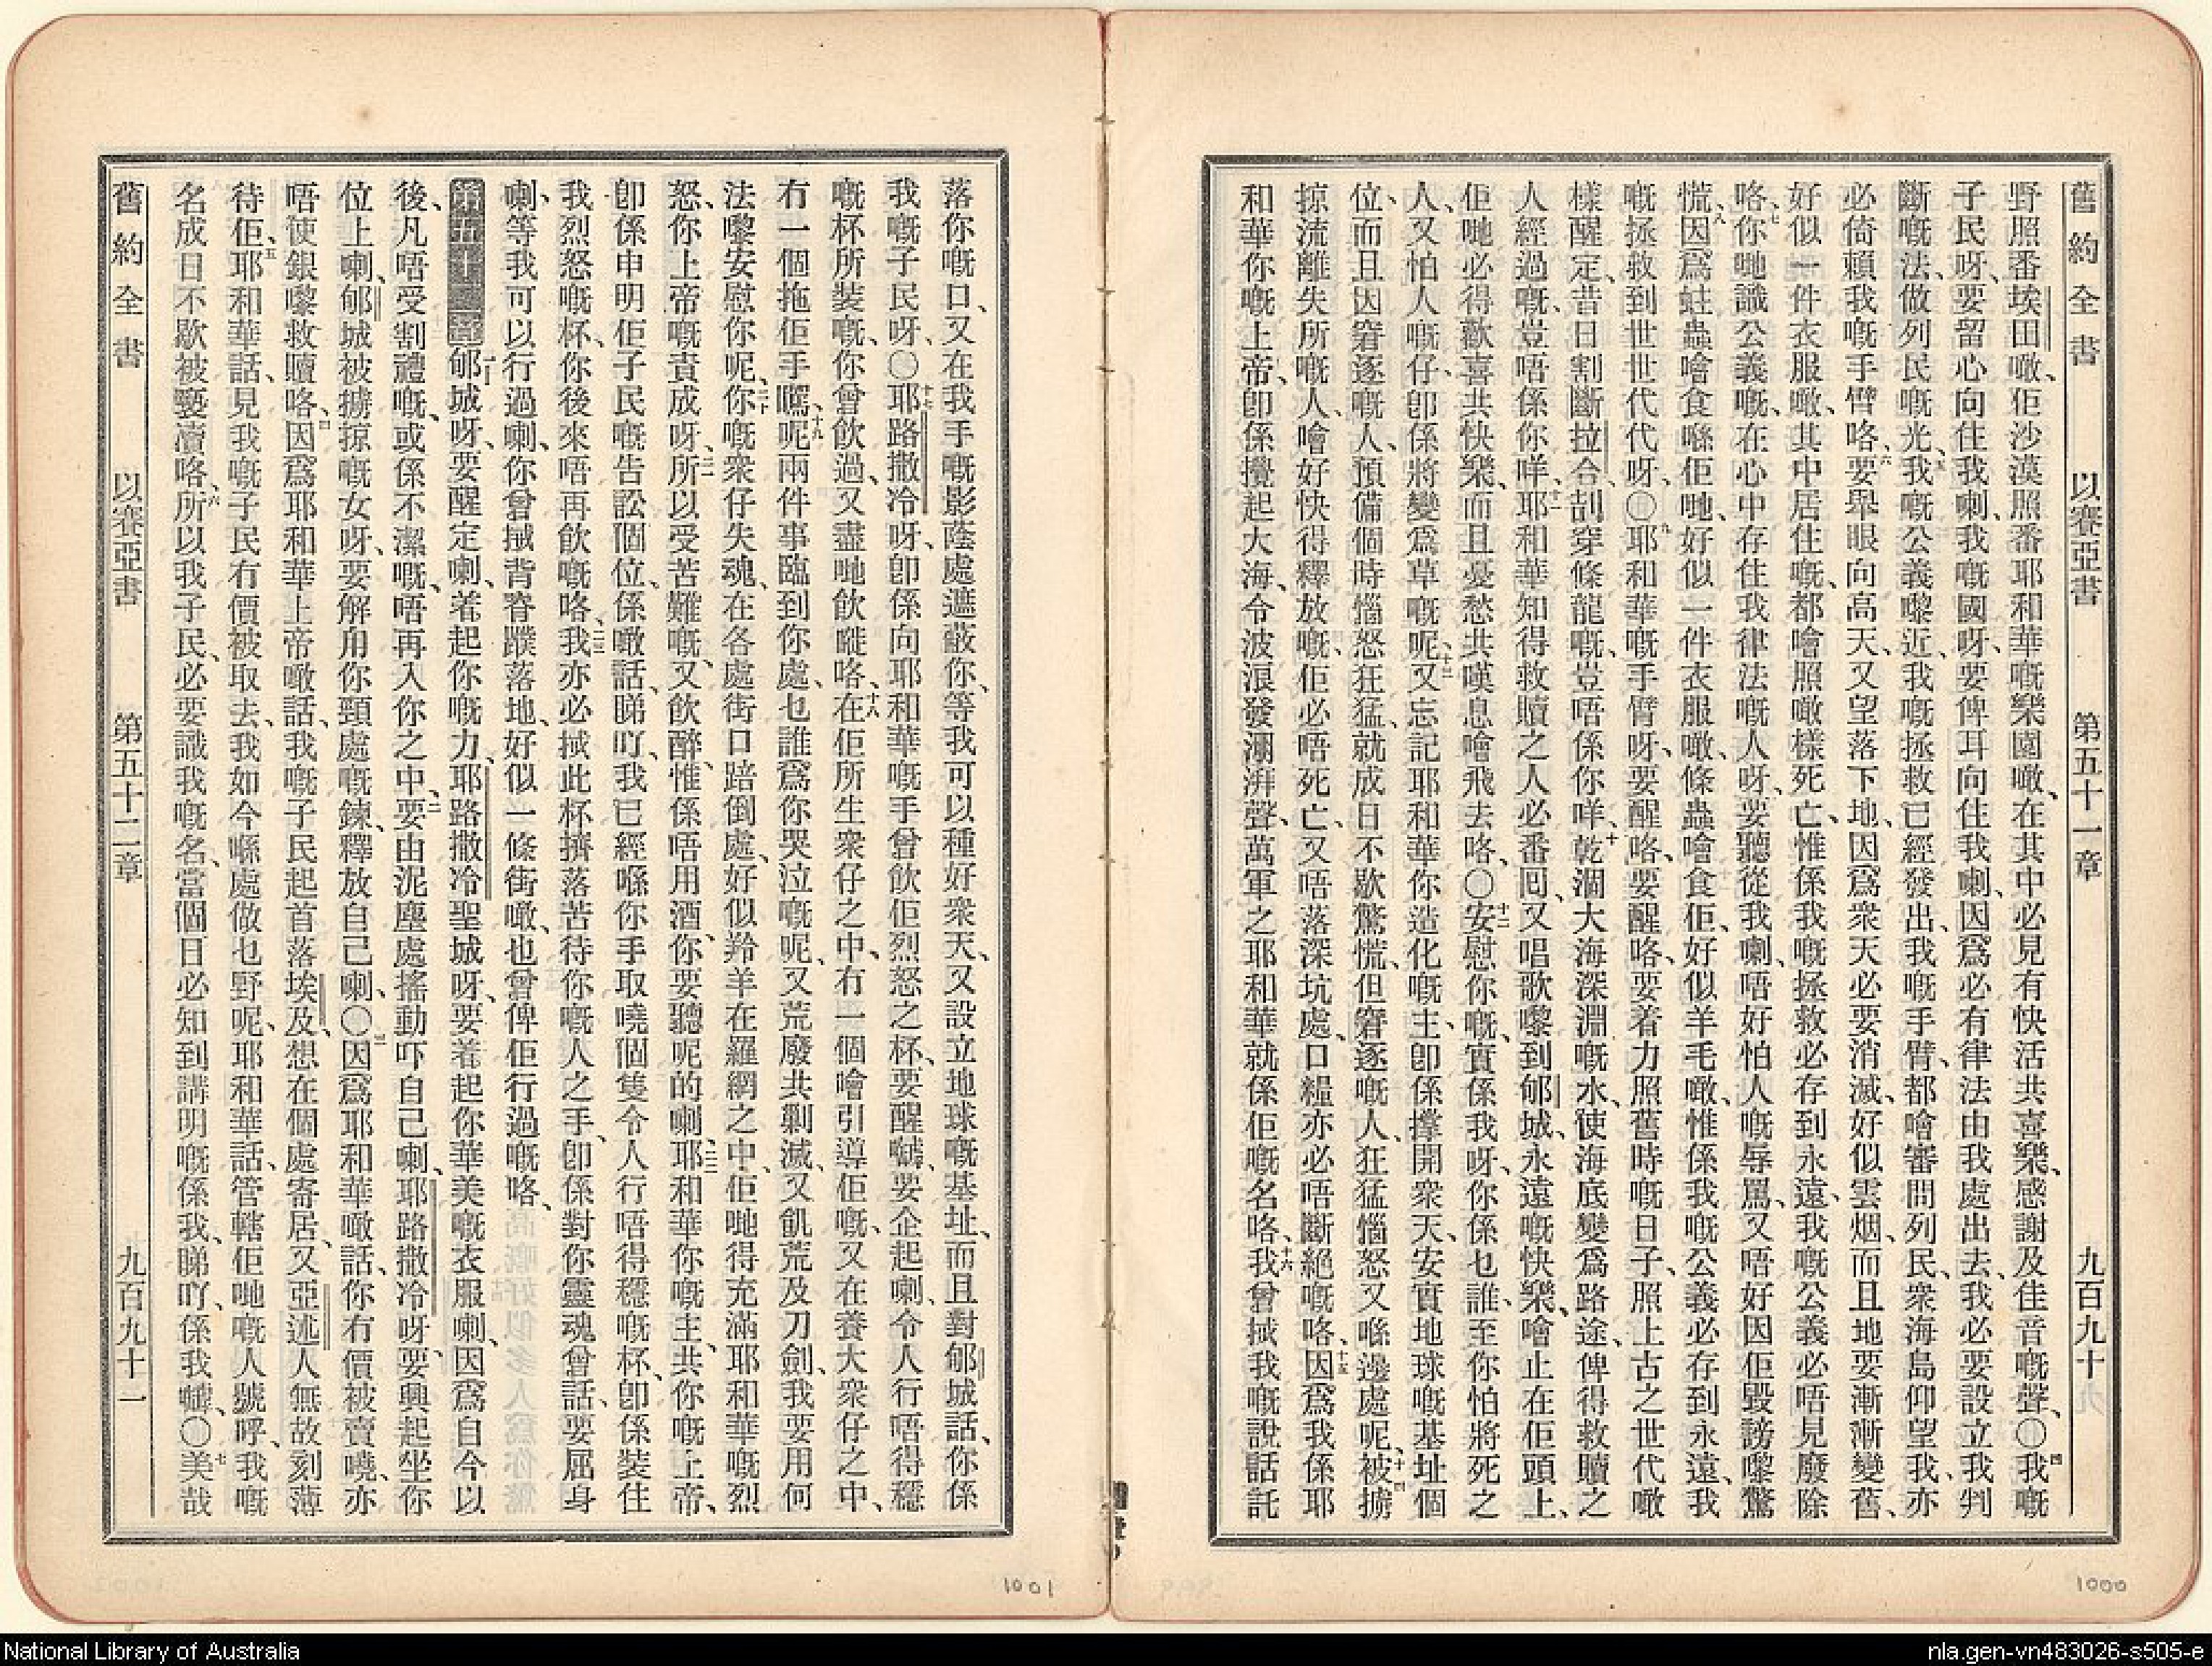 舊約全書　以賽亞書　第五十一章　九百九十
野照番埃田噉、佢沙漠照番耶和華嘅樂園噉、在其中必見有快活共喜樂、感謝及佳音嘅聲、〇四我嘅
子民呀、要留心向住我喇、我嘅國呀、要俾耳向住我喇、因爲必有律法由我處出去、我必要設立我判
斷嘅法、做列民嘅光、五我嘅公義嚟近、我嘅拯救已經發出、我嘅手臂、都噲審問列民、衆海島仰望我、亦
必倚賴我嘅手臂咯、六要舉眼向高天、又望落下地、因爲衆天必要消滅、好似雲烟、而且地要漸漸變舊、
好似一件衣服噉、其中居住嘅、都噲照噉樣死亡、惟係我嘅拯救必存到永遠、我嘅公義必唔見廢除
咯、七你哋識公義嘅、在心中存住我律法嘅人呀、要聽從我喇、唔好怕人嘅辱罵、又唔好因佢毀謗嚟驚
慌、八因爲蛀蟲噲食喺佢哋、好似一件衣服噉、條蟲噲食佢、好似羊毛噉、惟係我嘅公義必存到永遠、我
嘅拯救到世世代代呀、〇九耶和華嘅手臂呀、要醒咯、要醒咯、要着力照舊時嘅日子、照上古之世代噉
樣醒定、昔日割斷拉合、刮穿條龍嘅、豈唔係你咩、十乾涸大海深淵嘅水、使海底變爲路途、俾得救贖之
人經過嘅、豈唔係你咩、十一耶和華知得救贖之人必番囘、又唱歌嚟到郇城、永遠嘅快樂、噲止在佢頭上、
佢哋必得歡喜共快樂、而且憂愁共嘆息噲飛去咯、〇十二安慰你嘅、實係我呀、你係乜誰、至你怕將死之
人、又怕人嘅仔、卽係將變爲草嘅呢、十三又忘記耶和華你造化嘅主、卽係撑開衆天、安實地球嘅基址個
位、而且因窘逐嘅人、預備個時惱怒狂猛、就成日不歇驚慌、但窘逐嘅人、狂猛惱怒又喺邊處呢、十四被擄
掠流離失所嘅人、噲好快得釋放嘅、佢必唔死亡、又唔落深坑處、口糧亦必唔斷絕嘅咯、十五因爲我係耶
和華你嘅上帝、卽係攪起大海、令波浪發澎湃聲、萬軍之耶和華就係佢嘅名咯、十六我曾搣我嘅說話託
落你嘅口、又在我手嘅影蔭處遮蔽你、等我可以種好衆天、又設立地球嘅基址、而且對郇城話、你係
我嘅子民呀、〇十七耶路撒冷呀、卽係向耶和華嘅手曾飲佢烈怒之杯、要醒嚹、要企起喇、令人行唔得穩
嘅杯所裝嘅、你曾飲過、又盡哋飲嘥咯、十八在佢所生衆仔之中、冇一個噲引導佢嘅、又在養大衆仔之中、
冇一個拖佢手嚦、十九呢兩件事臨到你處、乜誰爲你哭泣嘅呢、又荒廢共剿滅、又飢荒及刀劍、我要用何
法嚟安慰你呢、二十你嘅衆仔失魂、在各處街口踣倒處、好似羚羊在羅網之中、佢哋得充滿耶和華嘅烈
怒、你上帝嘅責成呀、二一所以受苦難嘅、又飲醉、惟係唔用酒、你要聽呢的喇、二二耶和華你嘅主、共你嘅上帝、
卽係申明佢子民嘅告訟個位、係噉話、睇吖、我已經喺你手取嘵個隻令人行唔得穩嘅杯、卽係裝住
我烈怒嘅杯、你後來唔再飲嘅咯、二三我亦必搣此杯擠落苦待你嘅人之手、卽係對你靈魂曾話、要屈身
喇、等我可以行過喇、你曾搣背脊蹼落地、好似一條街噉、也曾俾佢行過嘅咯、
第五十二章　一郇城呀、要醒定喇、着起你嘅力、耶路撒冷聖城呀、要着起你華美嘅衣服喇、因爲自今以
後、凡唔受割禮嘅、或係不潔嘅、唔再入你之中、二要由泥塵處搖動吓自己喇、耶路撒冷呀、要興起坐你
位上喇、郇城被擄掠嘅女呀、要解甪你頸處嘅鍊、釋放自己喇、〇三因爲耶和華噉話、你冇價被賣嘵、亦
唔使銀嚟救贖咯、四因爲耶和華上帝噉話、我嘅子民起首落埃及、想在個處寄居、又亞述人無故刻薄
待佢、五耶和華話、見我嘅子民冇價被取去、我如今喺處做乜野呢、耶和華話、管轄佢哋嘅人號呼、我嘅
名成日不歇被褻瀆咯、六所以我子民、必要識我嘅名、當個日必知到講明嘅係我、睇吖、係我嚹、〇七美哉
舊約全書　以賽亞書　第五十二章　九百九十一
1001
1000
National Library of Australia
nla.gen-vn483026-s505-e